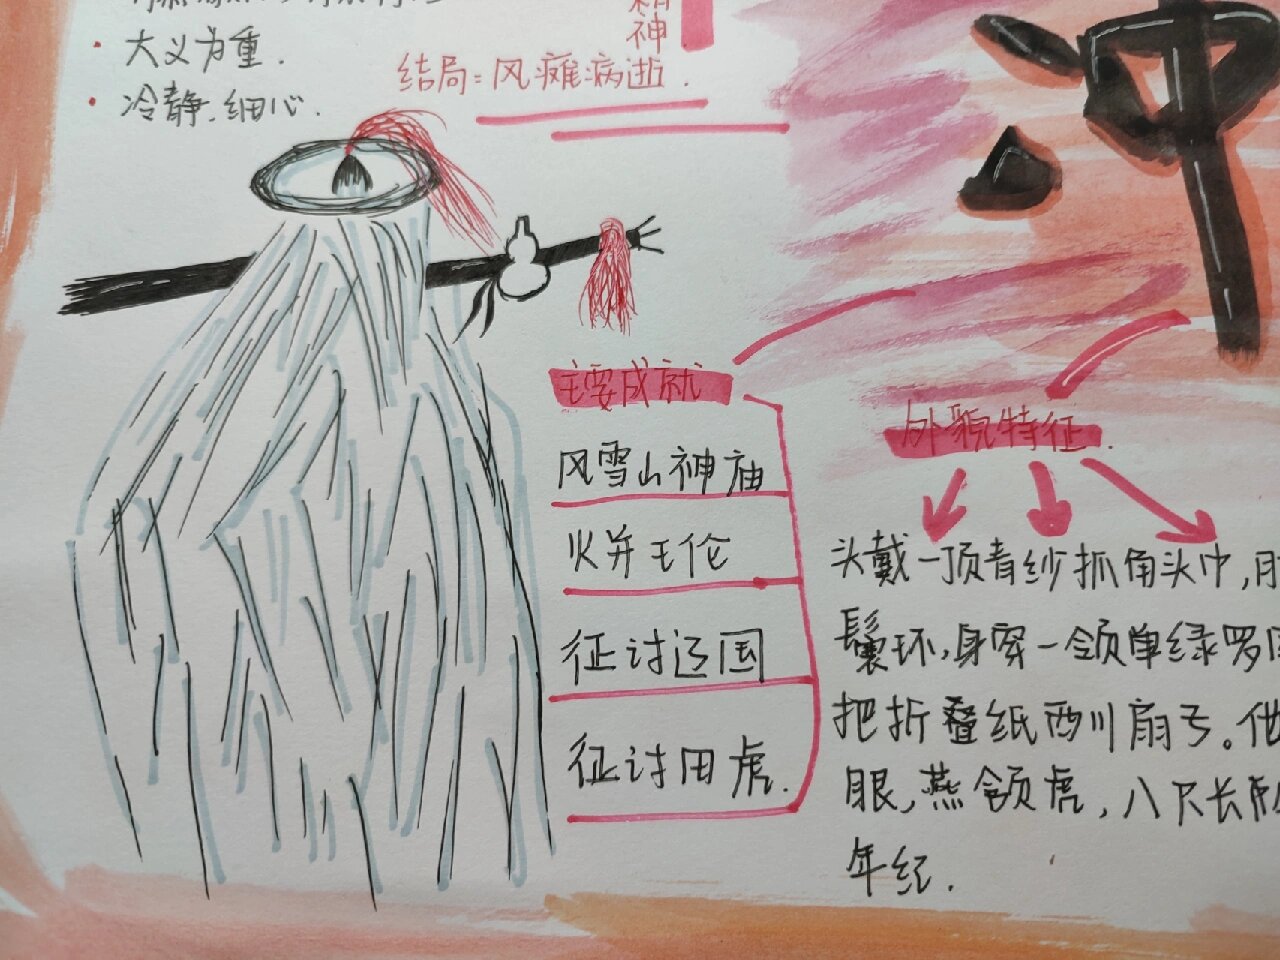 大义为重.
冷静.细心.
神
结局:风瘫病逝.
冲
主要成就
风雪山神庙
火并王伦
征讨辽国
征讨田虎.
外貌特征.
头戴一顶青纱抓角头巾,
鬓环,身穿一领单绿罗
把折叠纸西川扇子。他
眼,燕颔虎,八尺长
年纪.